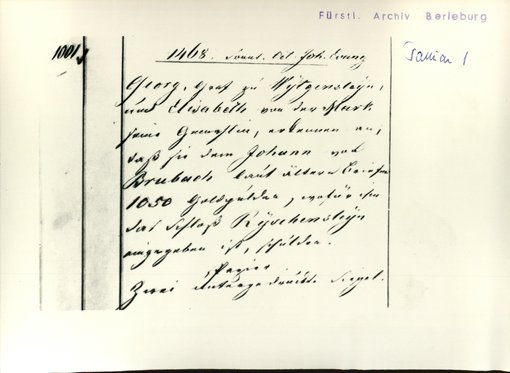 Fürstl. Archiv Berleburg
1001
1468. Sonnt. Oct. Joh. Evang
Januar 1
Georg, Graf zu Wytgensteyn,
und Elisabeth von der Mark
seine Gemahlin, erkennen an,
daß sie dem Johann von
Brubach laut ältern Briefen
1050 Goldgulden, wofür ihm
das Schloß Ryschensteyn
eingegeben ist, schulden.
Papier
Zwei untergedruckte Siegel.